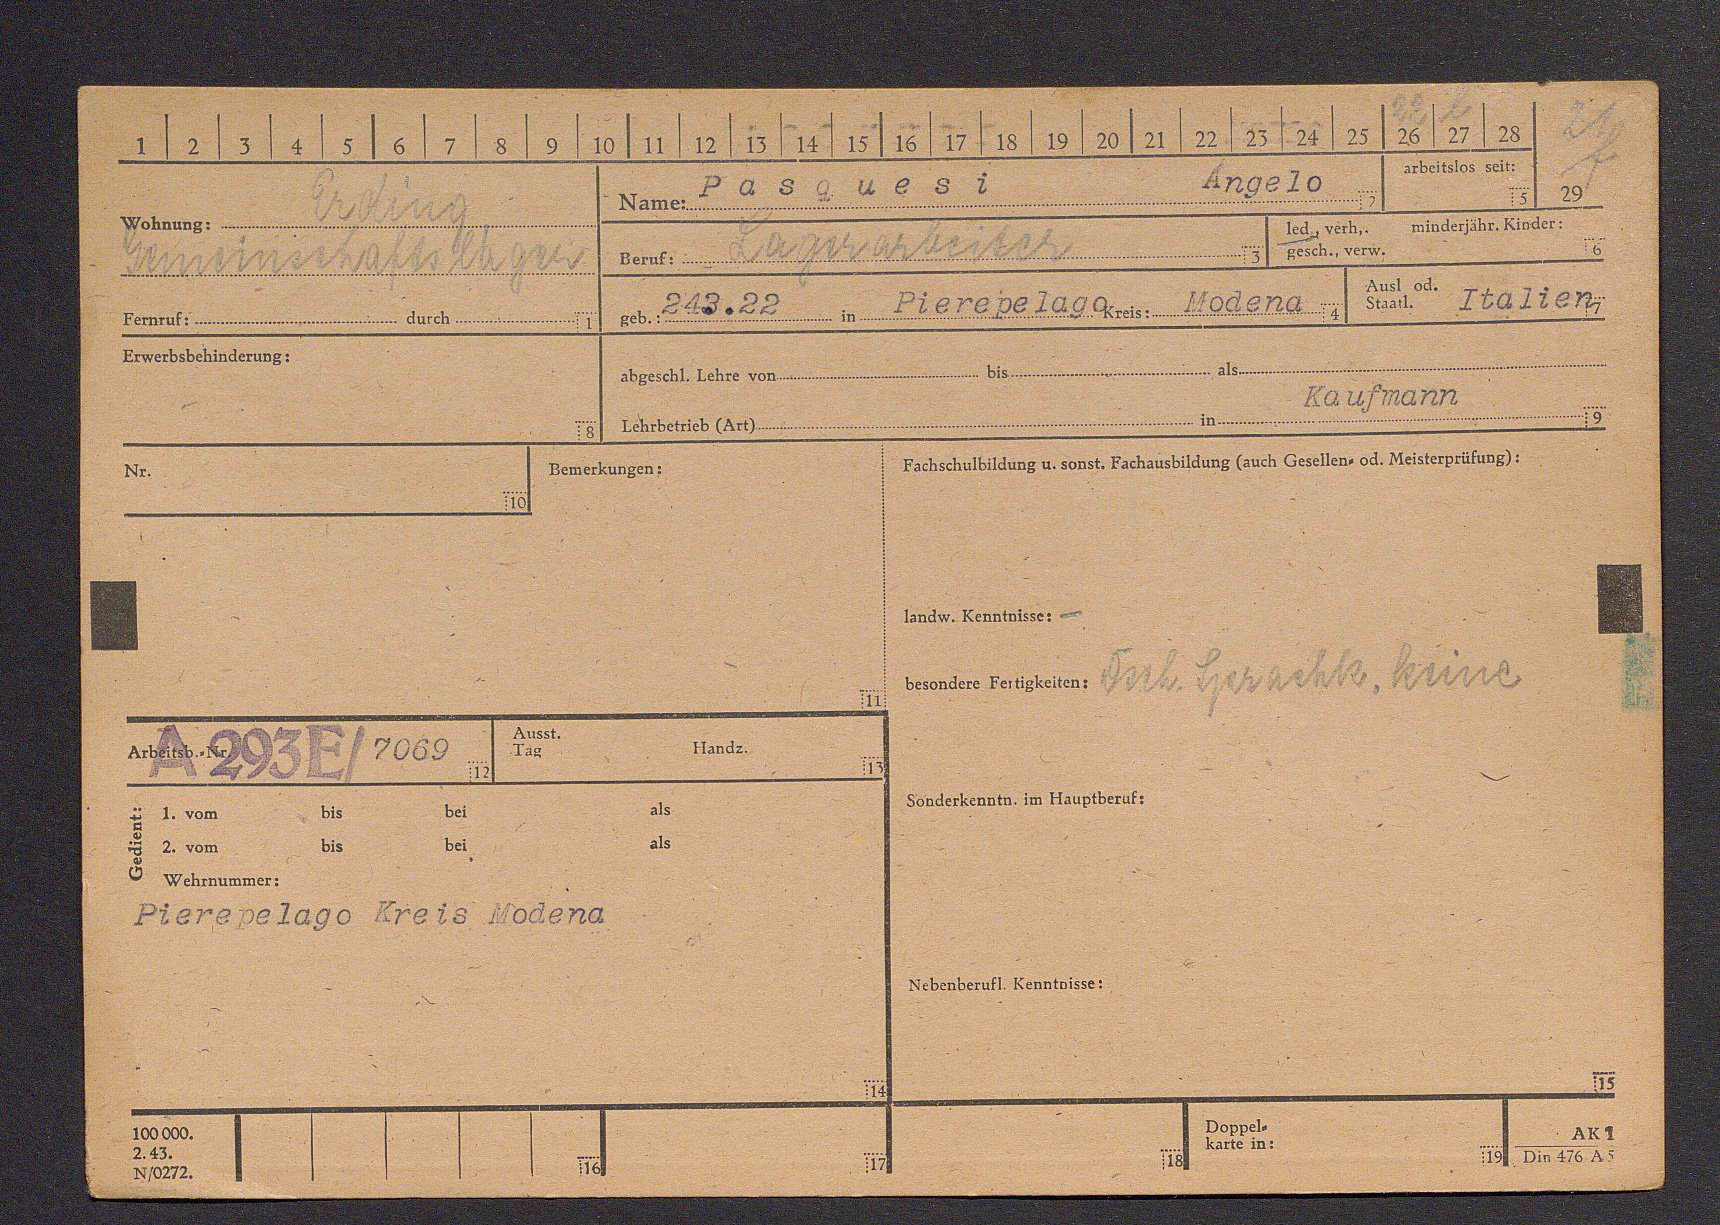 1 2 3 4 5 6 7 8 9 10 11 12 13 14 15 16 17 18 19 20 21 22 23 24 25 26 27 28 29
Wohnung: Erding
Gemeinschaftslager
Fernruf: durch 1
Name: Pasquesi Angelo 2
arbeitslos seit: 5
Beruf: Lagerarbeiter 3
led., verh., minderjähr. Kinder:
gesch., verw. 6
geb.: 243.22 in Pierepelago Kreis: Modena 4
Ausl od.
Staatl. Italien 7
Erwerbsbehinderung: 8
abgeschl. Lehre von bis als
Kaufmann
Lehrbetrieb (Art) in 9
Nr. 10
Bemerkungen: 11
Fachschulbildung u. sonst. Fachausbildung (auch Gesellen- od. Meisterprüfung):
landw. Kenntnisse: –
besondere Fertigkeiten: Dtsch. Sprachk. keine
Arbeitsb.-Nr. A 293E/ 7069 12
Ausst.
Tag Handz. 13
Gedient:
1. vom bis bei als
2. vom bis bei als
Wehrnummer:
Pierepelago Kreis Modena
14
Sonderkenntn. im Hauptberuf:
Nebenberufl. Kenntnisse:
15
100 000.
2. 43.
N/0272.
16 17 18
Doppel-
karte in: 19
AK 1
Din 476 A5